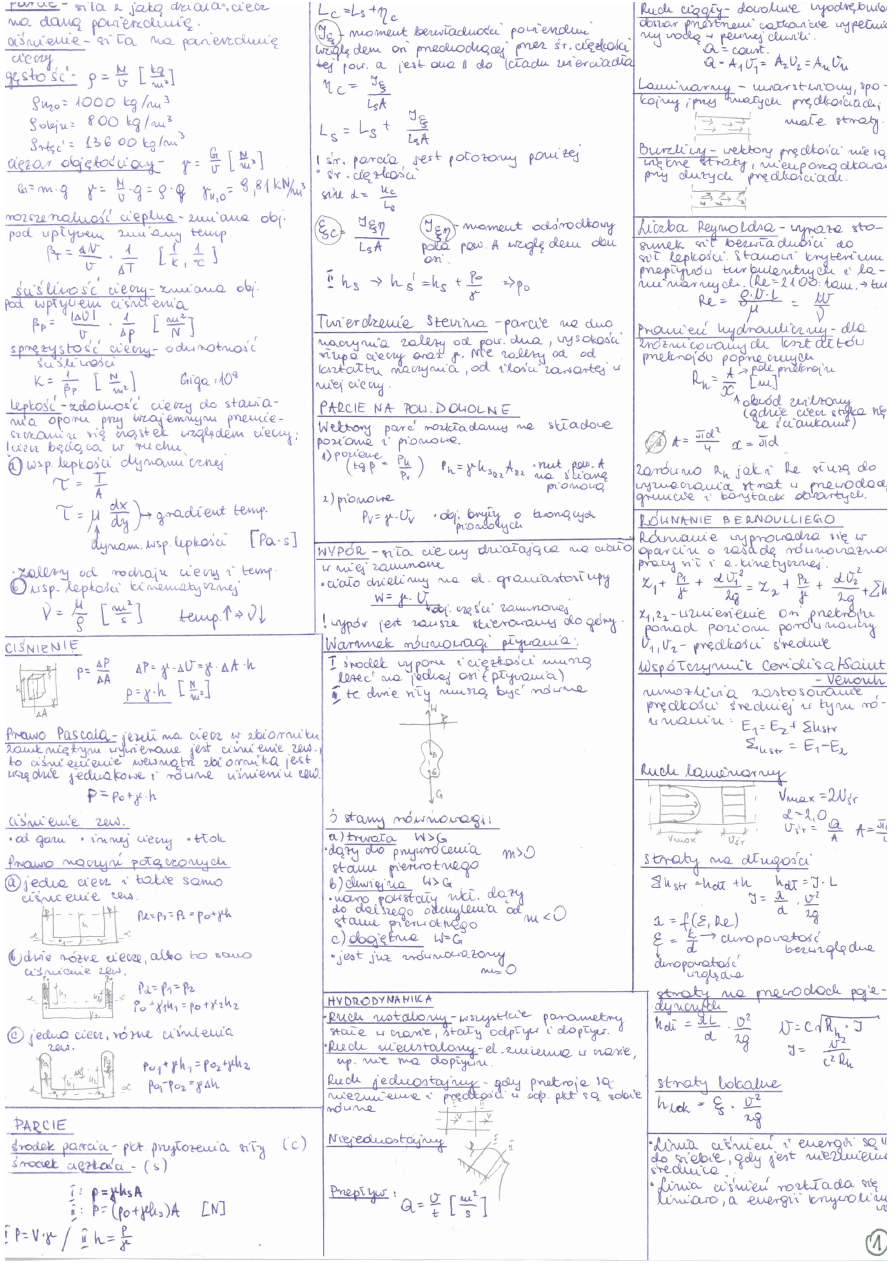 Parcie - siła z jaką działa ciecz
na daną powierzchnię.
ciśnienie - siła na powierzchnię
cieczy
gęstość - ρ = M/V [kg/m³]
ρH₂O = 1000 kg/m³
ρoleju = 800 kg/m³
ρrtęć = 13600 kg/m³
ciężar objętościowy - γ = G/V [N/m³]
G = m·g γ = M/V · g = ρ·g γH₂O = 9,81 kN/m³
rozszerzalność cieplna - zmiana obj.
pod wpływem zmiany temp
βT = ΔV/V · 1/ΔT [1/K, 1/°C]
ściśliwość cieczy - zmiana obj.
pod wpływem ciśnienia
βp = |ΔV|/V · 1/Δp [m²/N]
sprężystość cieczy - odwrotność
ściśliwości
K = 1/βp [N/m²] Giga = 10⁹
lepkość - zdolność cieczy do stawia-
nia oporu przy wzajemnym przemie-
szczaniu się cząstek względem cieczy;
ciecz będąca w ruchu
ⓐ wsp. lepkości dynamicznej
τ = T/A
τ = μ dx/dy → gradient temp.
dynam. wsp. lepkości [Pa·s]
· zależy od rodzaju cieczy i temp.
ⓑ wsp. lepkości kinematycznej
ν = μ/ρ [m²/s] temp.↑ → ν↓
CIŚNIENIE
p = ΔP/ΔA ΔP = γ·ΔV = γ·ΔA·h
p = γ·h [N/m²]
h
ΔA
Prawo Pascala - jeżeli na ciecz w zbiorniku
zamkniętym wywierane jest ciśnienie zew.,
to ciśnienie wewnątrz zbiornika jest
wszędzie jednakowe i równe ciśnieniu zew.
P = p₀ + γ·h
ciśnienie zew.
· od gazu · innej cieczy · tłok
Prawo naczyń połączonych
ⓐ jedna ciecz i takie samo
ciśnienie zew.
PL = p₁ = P₂ = p₀ + γh
ⓑ dwie różne ciecze, albo to samo
ciśnienie zew.
PL = p₁ = p₂
p₀ + γ₁h₁ = p₀ + γ₂h₂
ⓒ jedna ciecz, różne ciśnienia
zew.
p₀₁ + γh₁ = p₀₂ + γh₂
p₀₁ - p₀₂ = γΔh
PARCIE
środek parcia - pkt przyłożenia siły (C)
środek ciężkości - (S)
I: P = γhsA
II: P = (p₀ + γhs)A [N]
I P = V·γ / II h = p/γ
Lc = Ls + ηc
Jξ - moment bezwładności powierzchni
względem osi przechodzącej przez śr. ciężkości
tej pow. a jest ona || do układu zwierciadła
ηc = Jξ/LsA
Lc = Ls + Jξ/LsA
! śr. parcia, jest położony poniżej
śr. ciężkości
sin α = hc/Lc
ξc = Jξη/LsA Jξη - moment odśrodkowy
pola pow. A względem obu
osi.
II hs → hs' = hs + p₀/γ => p₀
Twierdzenie Stevina - parcie na dno
naczynia zależy od pow. dna, wysokości
słupa cieczy oraz γ. Nie zależy od
kształtu naczynia, od ilości zawartej w
niej cieczy.
PARCIE NA POW. DOWOLNE
Wektory parć rozkładamy na składowe
poziome i pionowe.
1) poziome
(tg β = Ph/Pv) Ph = γhs₀zAyz · rzut pow. A
na ścianę
pionową
2) pionowe
Pv = γ·Vv · obj. bryły o tworzących
pionowych
WYPÓR - siła cieczy działająca na ciało
w niej zanurzone
· ciało dzielimy na el. graniastosłupy
W = γ·V
obj. części zanurzonej
! wypór jest zawsze skierowany do góry.
Warunek równowagi pływania:
I środek wyporu i ciężkości muszą
leżeć na jednej osi (pływania)
II te dwie siły muszą być równe
W
B
G
G
3 stany równowagi:
a) trwała W>G
· dąży do przywrócenia
stanu pierwotnego m>0
b) chwiejna W>G
dąży
do dalszego odchylenia od
stanu pierwotnego m<0
c) obojętna W=G
· jest już zrównoważony
m=0
HYDRODYNAMIKA
· Ruch ustalony - wszystkie parametry
stałe w czasie, stały odpływ i dopływ.
· Ruch nieustalony - el. zmienna w czasie,
np. nie ma dopływu.
Ruch jednostajny - gdy przekroje są
niezmienne i prędkości w odp. pkt są sobie
równe
Niejednostajny
Przepływ:
Q = V/t [m³/s]
Ruch ciągły - dowolnie wyodrębniony
obszar przestrzeni całkowicie wypełnio
ny wodą w pewnej chwili.
Q = const.
Q = A₁V₁ = A₂V₂ = AnVn
Laminarny - warstwowy, spo-
kojny, przy małych prędkościach,
małe straty.
Burzliwy - wektory prędkości nie są
większe straty, nieuporządkowa
przy dużych prędkościach.
Liczba Reynoldsa - wyraża sto-
sunek sił bezwładności do
sił lepkości. Stanowi kryterium
przepływów turbulentnych i la-
minarnych. (Re=2100: lam. → tur
Re = ρ·V·L/μ = LV/ν
Promień hydrauliczny - dla
zróżnicowanych kształtów
przekrojów poprzecznych
Rh = A/χ [m]
pole przekroju
obwód zwilżony
(gdzie ciecz styka się
ze ściankami)
A = πd²/4 χ = πd
Zarówno Rh jak i Re służą do
wyznaczania strat w przewodach
gruncie i korytach otwartych.
RÓWNANIE BERNOULLIEGO
Równanie wyprowadza się w
oparciu o zasadę równoważno
pracy sił i e. kinetycznej.
z₁ + p₁/γ + αV₁²/2g = z₂ + p₂/γ + αV₂²/2g + Σh
z₁, z₂ - wzniesienie osi przekroju
ponad poziom porównawczy
V₁, V₂ - prędkości średnie
Współczynnik Coriolisa/Saint
- Venanta
umożliwia zastosowanie
prędkości średniej w tym ró-
wnaniu: E₁ = E₂ + Σhstr
Σhstr = E₁ - E₂
Ruch laminarny
Vmax = 2Vśr
α = 2,0
Vśr = Q/A A = π
Vmax Vśr
straty na długości
Σhstr = hdł + h hdł = J·L
J = λ/d · v²/2g
λ = f(ε, Re)
ε = k/d → chropowatość
bezwzględna
chropowatość
względna
straty na przewodach poje-
dynczych
hdł = λL/d · v²/2g V = C√(Rh·J)
J = V²/c²Rh
straty lokalne
hlok = ξ · v²/2g
· Linia ciśnień i energii są ||
do siebie, gdy jest niezmienna
średnica.
· Linia ciśnień rozkłada się
liniowo, a energii krzywolin
1